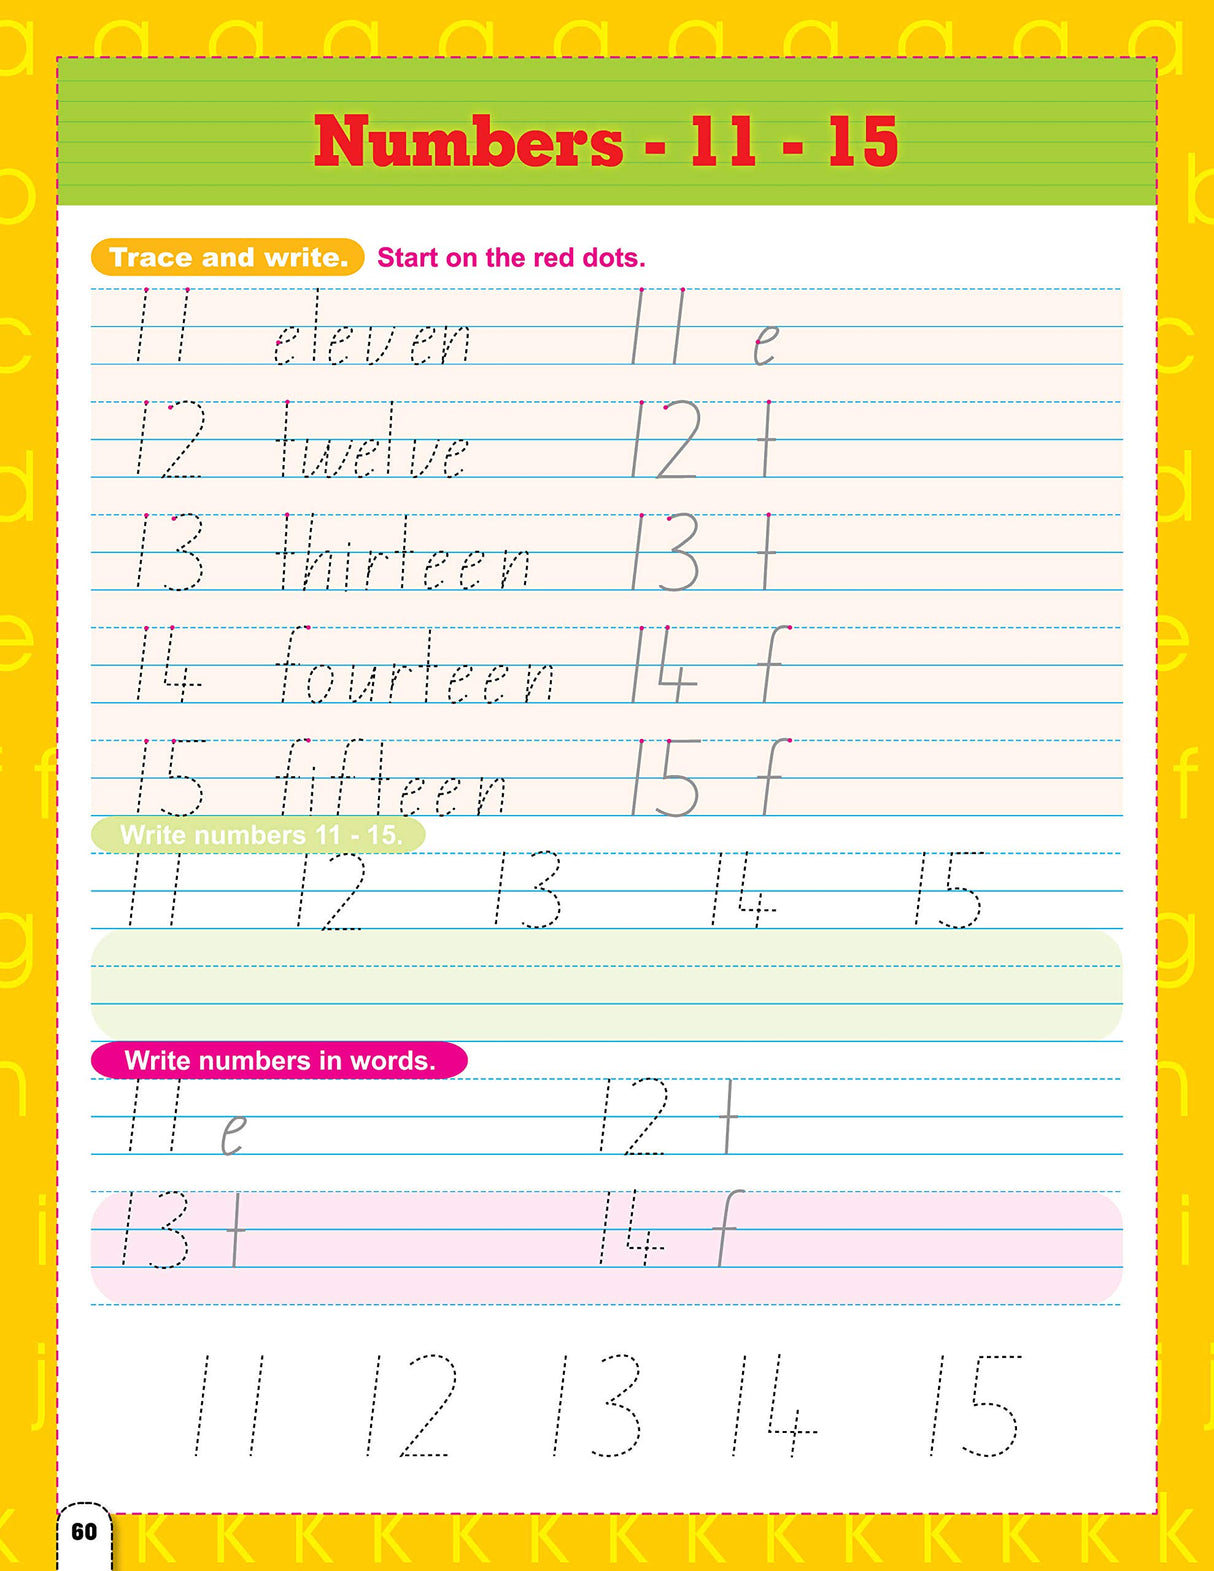 Numbers - 11 - 15
Trace and write. Start on the red dots.
11 eleven 11 e
12 twelve 12 t
13 thirteen 13 t
14 fourteen 14 f
15 fifteen 15 f
Write numbers 11 - 15.
11 12 13 14 15
Write numbers in words.
11 e 12 t
13 t 14 f
11 12 13 14 15
60